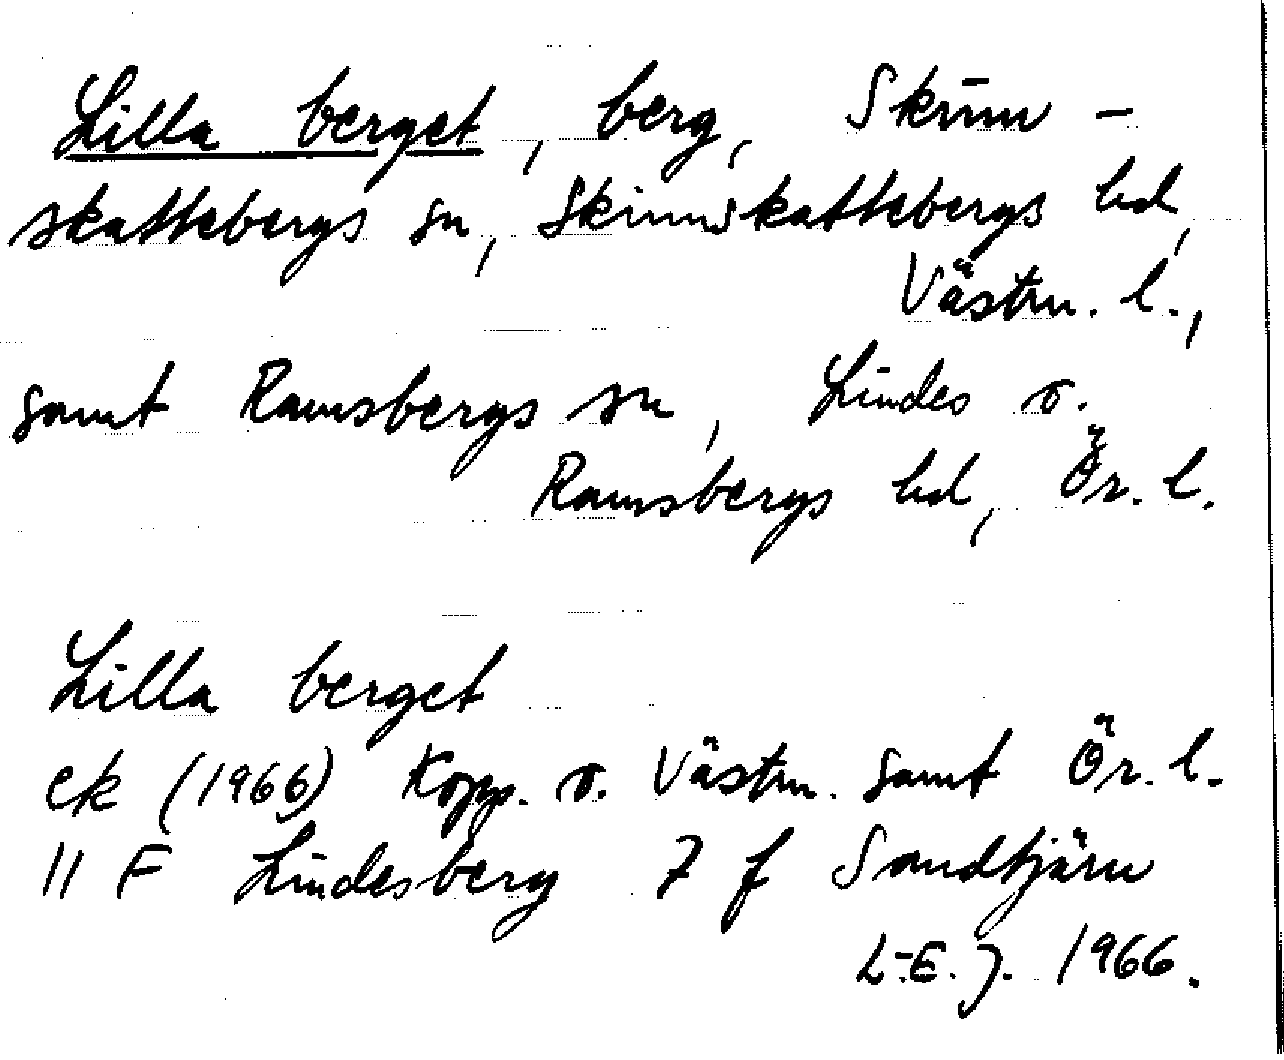 Lilla berget, berg, Skinn-
skattebergs sn, Skinnskattebergs hd,
Västm. l.,
samt Ramsbergs sn, Lindes o.
Ramsbergs hd, Ör. l.
Lilla berget
ek (1966) Kopp. o. Västm. samt Ör. l.
11 F Lindesberg 7 f Sandtjärn
L-E. J. 1966.